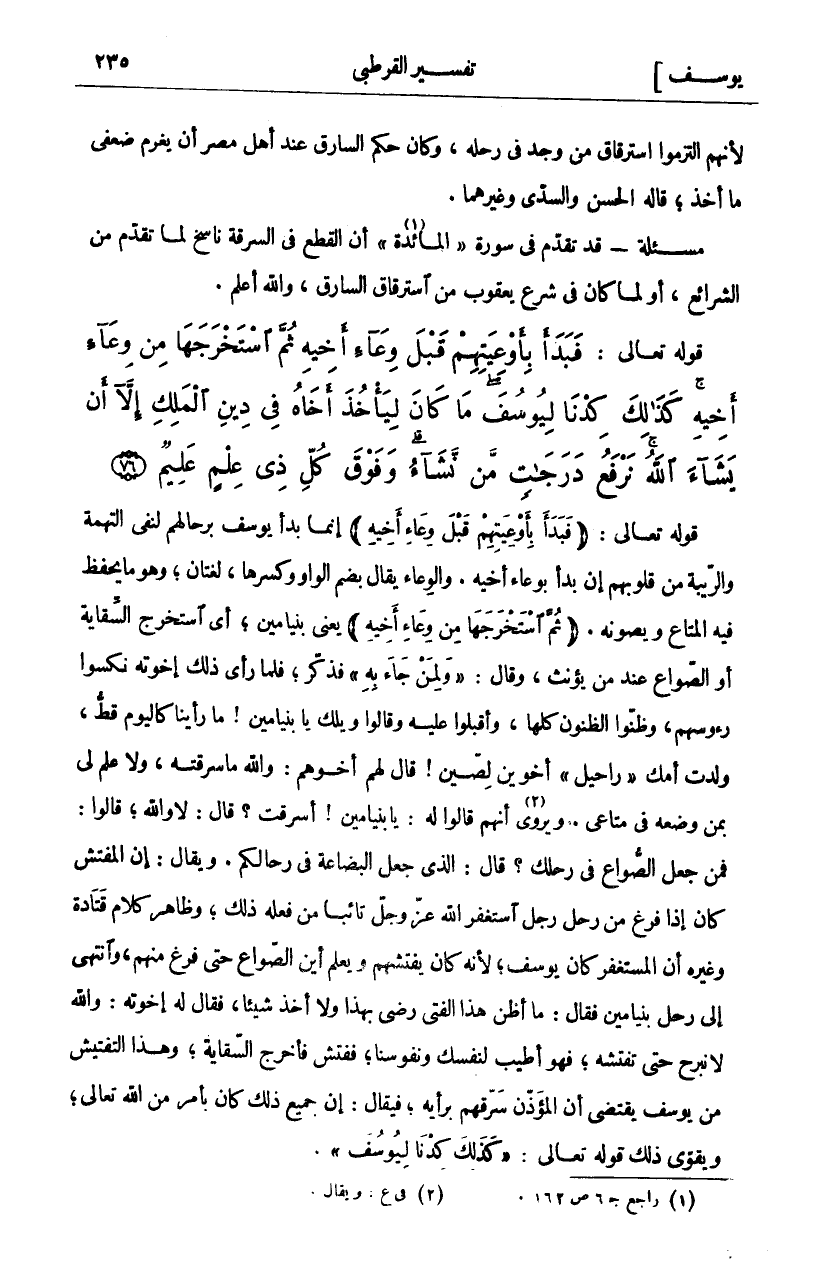 يوســف] تفســير القرطبى ٢٣٥
لأنهم التزموا استرقاق من وجد فى رحله ، وكان حكم السارق عند أهل مصر أن يغرم ضعفى
ما أخذ ؛ قاله الحسن والسدّى وغيرهما .
مســئلة – قد تقدّم فى سورة « المائدة(١) » أن القطع فى السرقة ناسخ لمــا تقدّم من
الشرائع ، أو لمــا كان فى شرع يعقوب من ٱسترقاق السارق ، والله أعلم .
قوله تعــالى : فَبَدَأَ بِأَوْعِيَتِهِمْ قَبْلَ وِعَآءِ أَخِيهِ ثُمَّ ٱسْتَخْرَجَهَا مِن وِعَآءِ
أَخِيهِۚ كَذَٰلِكَ كِدْنَا لِيُوسُفَۖ مَا كَانَ لِيَأْخُذَ أَخَاهُ فِى دِينِ ٱلْمَلِكِ إِلَّآ أَن
يَشَآءَ ٱللَّهُۚ نَرْفَعُ دَرَجَٰتٍ مَّن نَّشَآءُۗ وَفَوْقَ كُلِّ ذِى عِلْمٍ عَلِيمٌ ﴿٧٦﴾
قوله تعــالى : ﴿ فَبَدَأَ بِأَوْعِيَتِهِمْ قَبْلَ وِعَاءِ أَخِيهِ ﴾ إنمــا بدأ يوسف برحالهم لنفى التهمة
والرّيبة من قلوبهم إن بدأ بوعاء أخيه . والوِعاء يقال بضم الواو وكسرها ، لغتان ؛ وهو ما يحفظ
فيه المتاع ويصونه . ﴿ ثُمَّ ٱسْتَخْرَجَهَا مِن وِعَاءِ أَخِيهِ ﴾ يعنى بنيامين ؛ أى ٱستخرج السِّقاية
أو الصّواع عند من يؤنث ، وقال : « وَلِمَنْ جَاءَ بِهِ » فذكّر ؛ فلما رأى ذلك إخوته نكسوا
رءوسهم، وظنّوا الظنون كلها ، وأقبلوا عليــه وقالوا ويلك يا بنيامين ! ما رأينا كاليوم قطّ ،
ولدت أمك « راحيل » أخوين لِصّــين ! قال لهم أخــوهم : والله ما سرقتــه ، ولا علم لى
بمن وضعه فى متاعى .. ويروى(٢) أنهم قالوا له : يا بنيامين ! أسرقت ؟ قال : لا والله ؛ قالوا :
فمن جعل الصُّواع فى رحلك ؟ قال : الذى جعل البضاعة فى رحالكم . ويقال : إن المفتش
كان إذا فرغ من رحل رجل ٱستغفر الله عزّ وجلّ تائبــا من فعله ذلك ؛ وظاهر كلام قَتَادة
وغيره أن المستغفر كان يوسف؛ لأنه كان يفتشهم ويعلم أين الصّواع حتى فرغ منهم ،وٱنتهى
إلى رحل بنيامين فقال : ما أظن هذا الفتى رضى بهذا ولا أخذ شيئا، فقال له إخوته : والله
لا نبرح حتى تفتشه ؛ فهو أطيب لنفسك ونفوسنا؛ ففتش فأخرج السّقاية ؛ وهــذا التفتيش
من يوسف يقتضى أن المؤذّن سَرّقهم برأيه ؛ فيقال : إن جميع ذلك كان بأمر من الله تعالى؛
ويقوّى ذلك قوله تعــالى : «كَذَلِكَ كِدْنَا لِيُوسُفَ » .
(١) راجع جـ ٦ ص ١٦٢ . (٢) فى ع : ويقال .